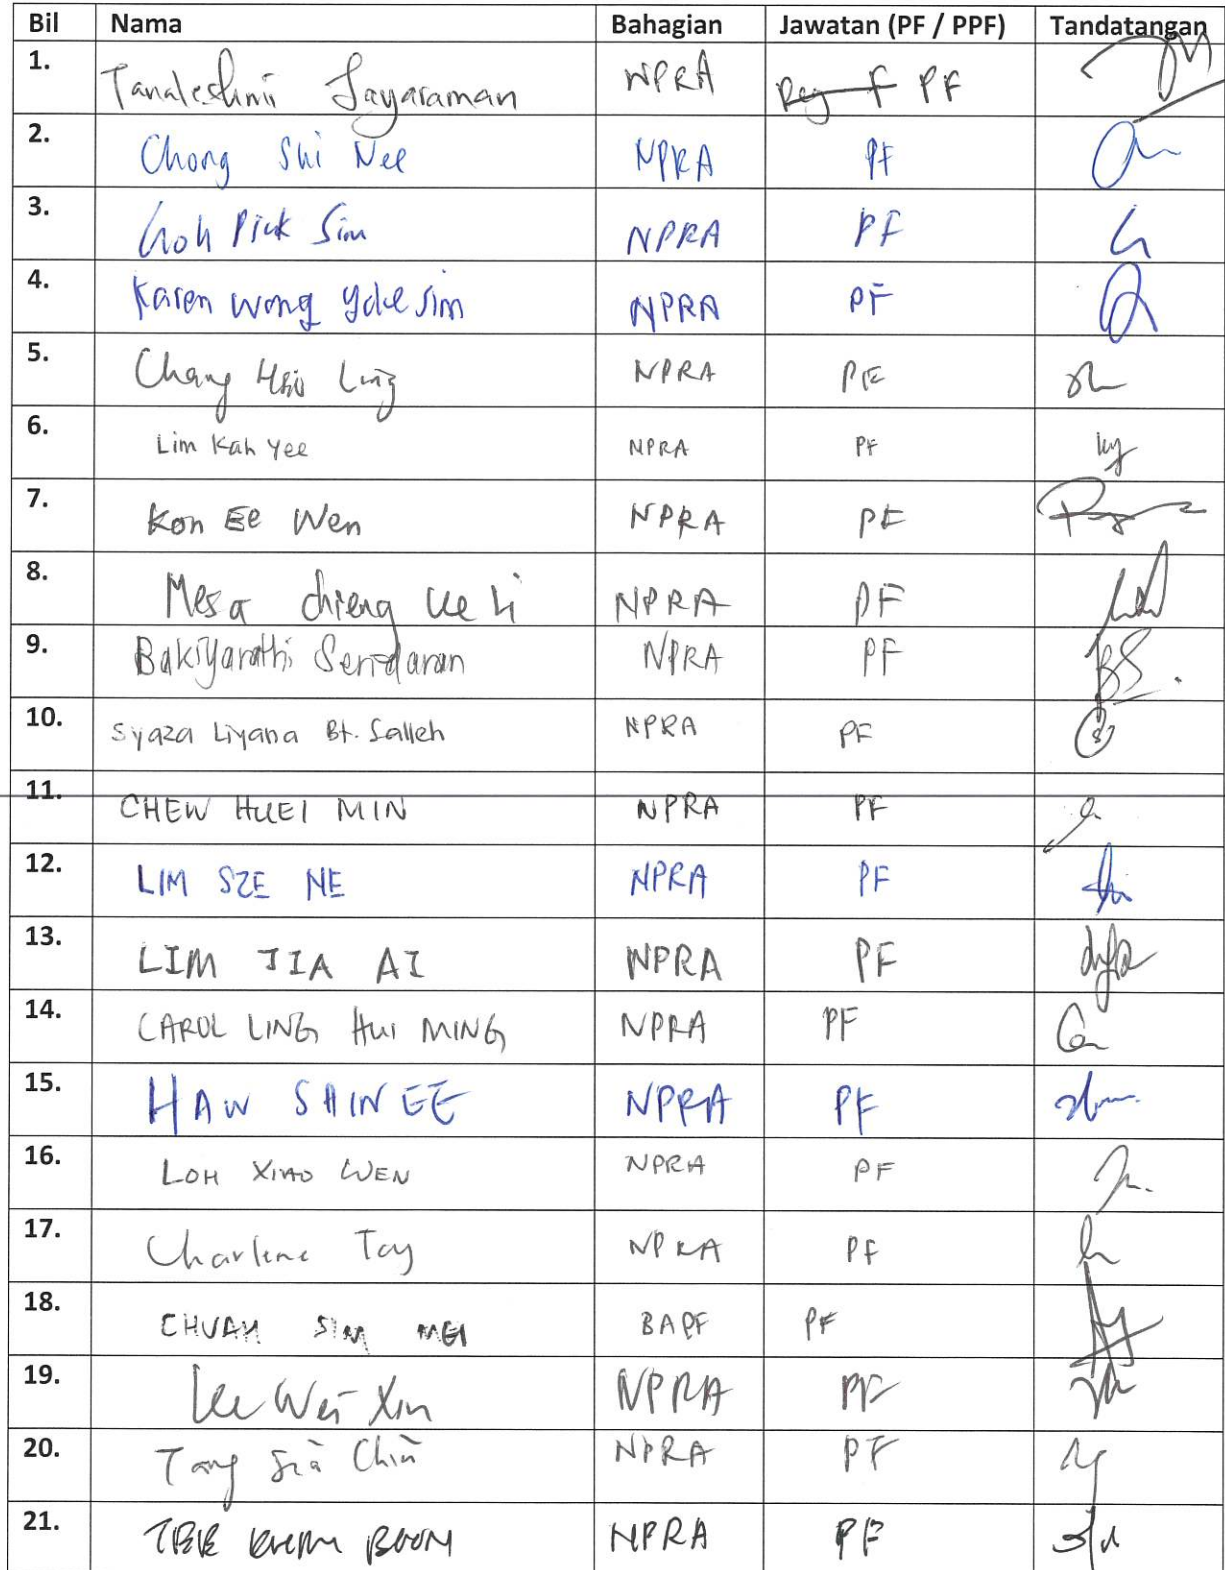 Bil Nama Bahagian Jawatan (PF / PPF) Tandatangan
1. Tanaleshmi Jayaraman NPRA Reg F PF
2. Chong Shi Nee NPRA PF
3. Goh Pick Sim NPRA PF
4. Karen Wong Yoke Sim NPRA PF
5. Chang Hsiu Ling NPRA PF
6. Lim Kah Yee NPRA PF
7. Kon Ee Wen NPRA PF
8. Mesa Chieng NPRA PF
9. Bakiyarathi Seridaran NPRA PF
10. Syaza Liyana Bt. Salleh NPRA PF
11. CHEW HUEI MIN NPRA PF
12. LIM SZE NE NPRA PF
13. LIM JIA AI NPRA PF
14. CAROL LING HUI MING NPRA PF
15. HAW SHIN EE NPRA PF
16. LOH XIAO WEN NPRA PF
17. Charlene Tay NPRA PF
18. CHUAH SIM MEI BAPF PF
19. Lee Wei Xin NPRA PF
20. Tang Sia Chin NPRA PF
21. TEE BOON NPRA PF